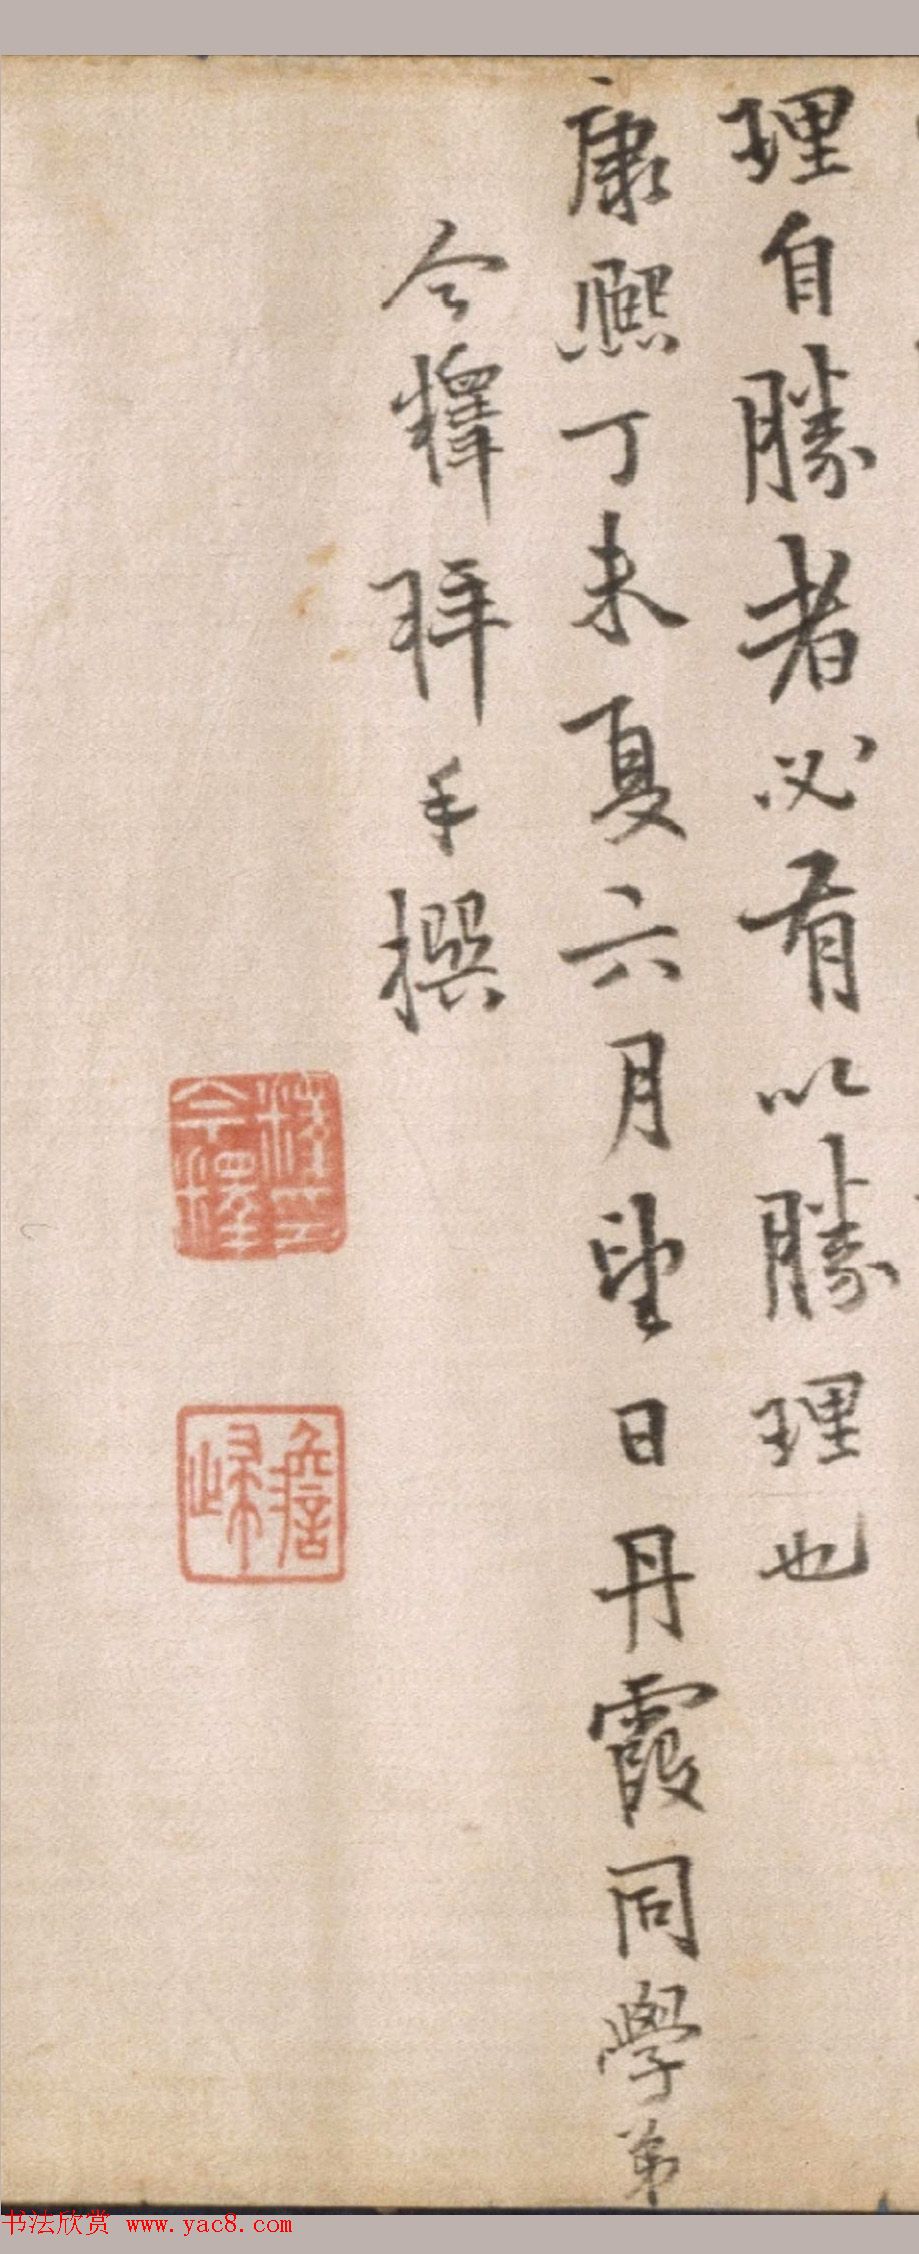 理自勝者必有以勝理也
康熙丁未夏六月望日丹霞同學弟
今釋拜手撰
今釋
澹歸
书法欣赏 www.yac8.com